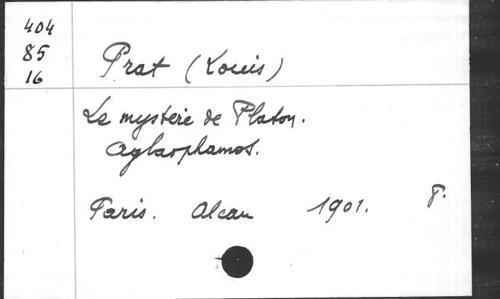 404
85
16
Prat (Louis)
Le mystère de Platon.
Aglaophamos.
Paris. Alcan 1901. F.